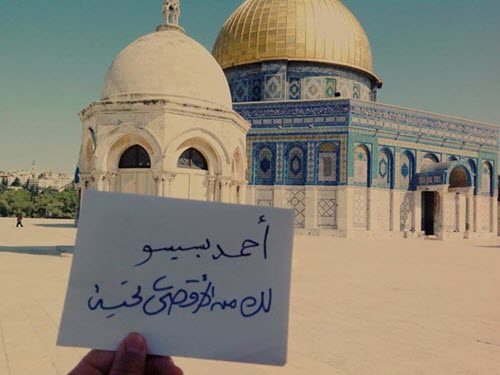 أحمد بسيسو
لك من الأقصى تحية